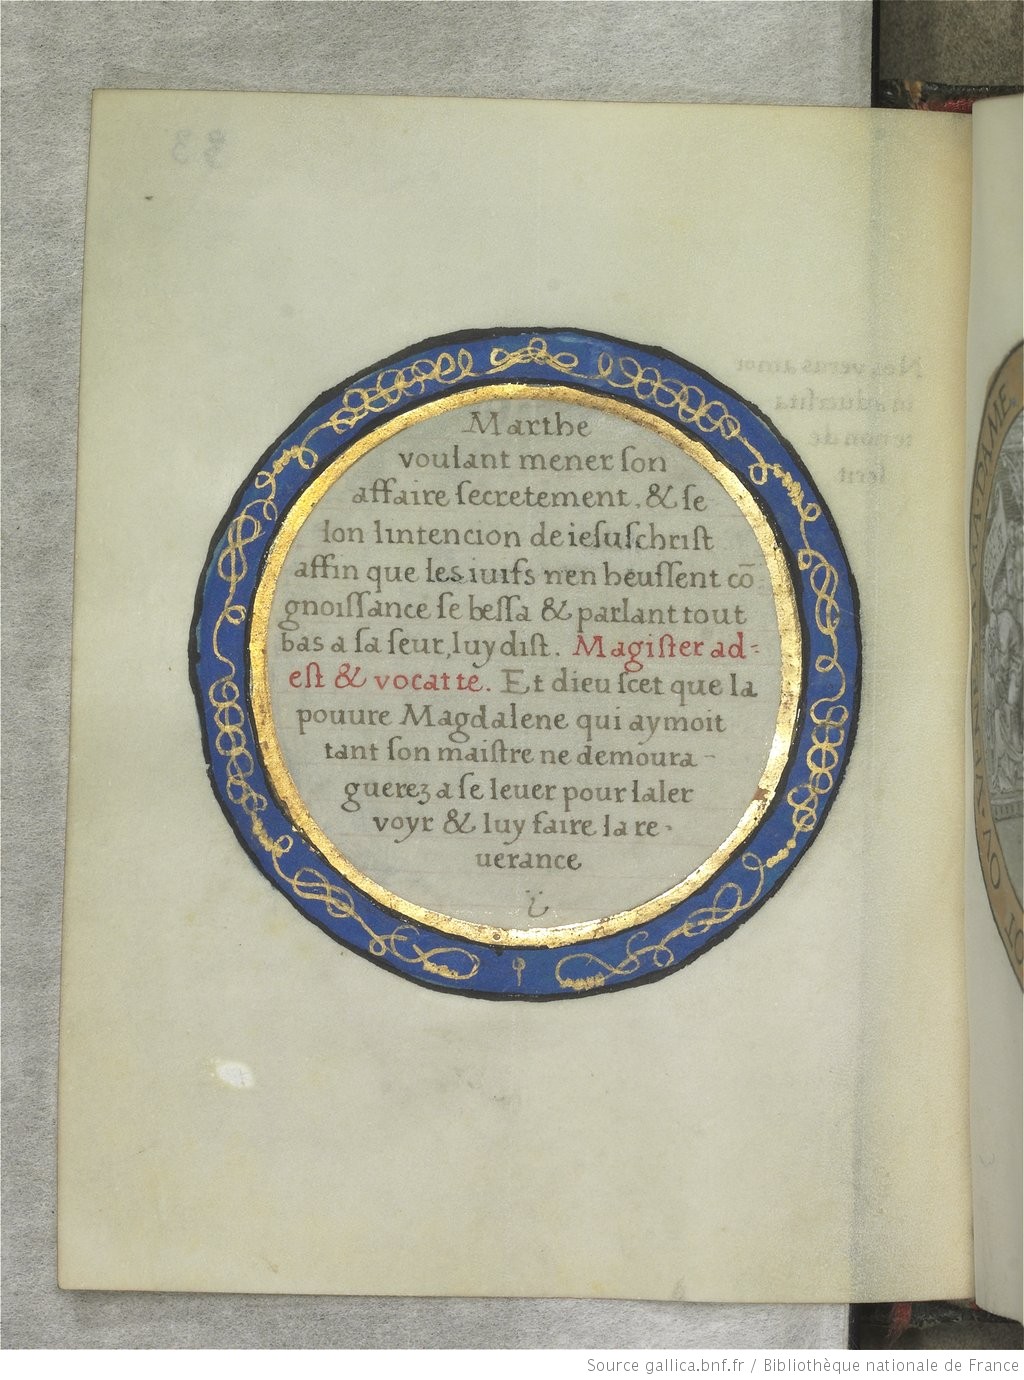 Marthe
voulant mener ſon
affaire ſecretement, & ſe
lon lintencion de ieſuſchriſt
affin que les iuifs nen heuſſent cō-
gnoiſſance ſe beſſa & parlant tout
bas a ſa ſeur, luy diſt. Magiſter ad-
eſt & vocat te. Et dieu ſcet que la
pouure Magdalene qui aymoit
tant ſon maiſtre ne demoura-
guerez a ſe leuer pour laler
voyr & luy faire la re-
uerance
DAME
NON
Source gallica.bnf.fr / Bibliothèque nationale de France